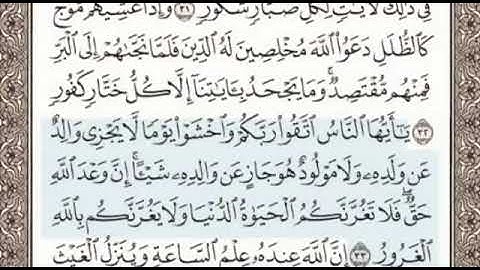 فِي ذَٰلِكَ لَآيَاتٍ لِّكُلِّ صَبَّارٍ شَكُورٍ ﴿٣١﴾ وَإِذَا غَشِيَهُم مَّوْجٌ
كَالظُّلَلِ دَعَوُا۟ ٱللَّهَ مُخْلِصِينَ لَهُ ٱلدِّينَ فَلَمَّا نَجَّىٰهُمْ إِلَى ٱلْبَرِّ
فَمِنْهُم مُّقْتَصِدٌ ۚ وَمَا يَجْحَدُ بِـَٔايَـٰتِنَآ إِلَّا كُلُّ خَتَّارٍ كَفُورٍ
﴿٣٢﴾ يَـٰٓأَيُّهَا ٱلنَّاسُ ٱتَّقُوا۟ رَبَّكُمْ وَٱخْشَوْا۟ يَوْمًا لَّا يَجْزِى وَالِدٌ
عَن وَلَدِهِۦ وَلَا مَوْلُودٌ هُوَ جَازٍ عَن وَالِدِهِۦ شَيْـًٔا ۚ إِنَّ وَعْدَ ٱللَّهِ
حَقٌّ ۖ فَلَا تَغُرَّنَّكُمُ ٱلْحَيَوٰةُ ٱلدُّنْيَا وَلَا يَغُرَّنَّكُم بِٱللَّهِ
ٱلْغَرُورُ ﴿٣٣﴾ إِنَّ ٱللَّهَ عِندَهُۥ عِلْمُ ٱلسَّاعَةِ وَيُنَزِّلُ ٱلْغَيْثَ